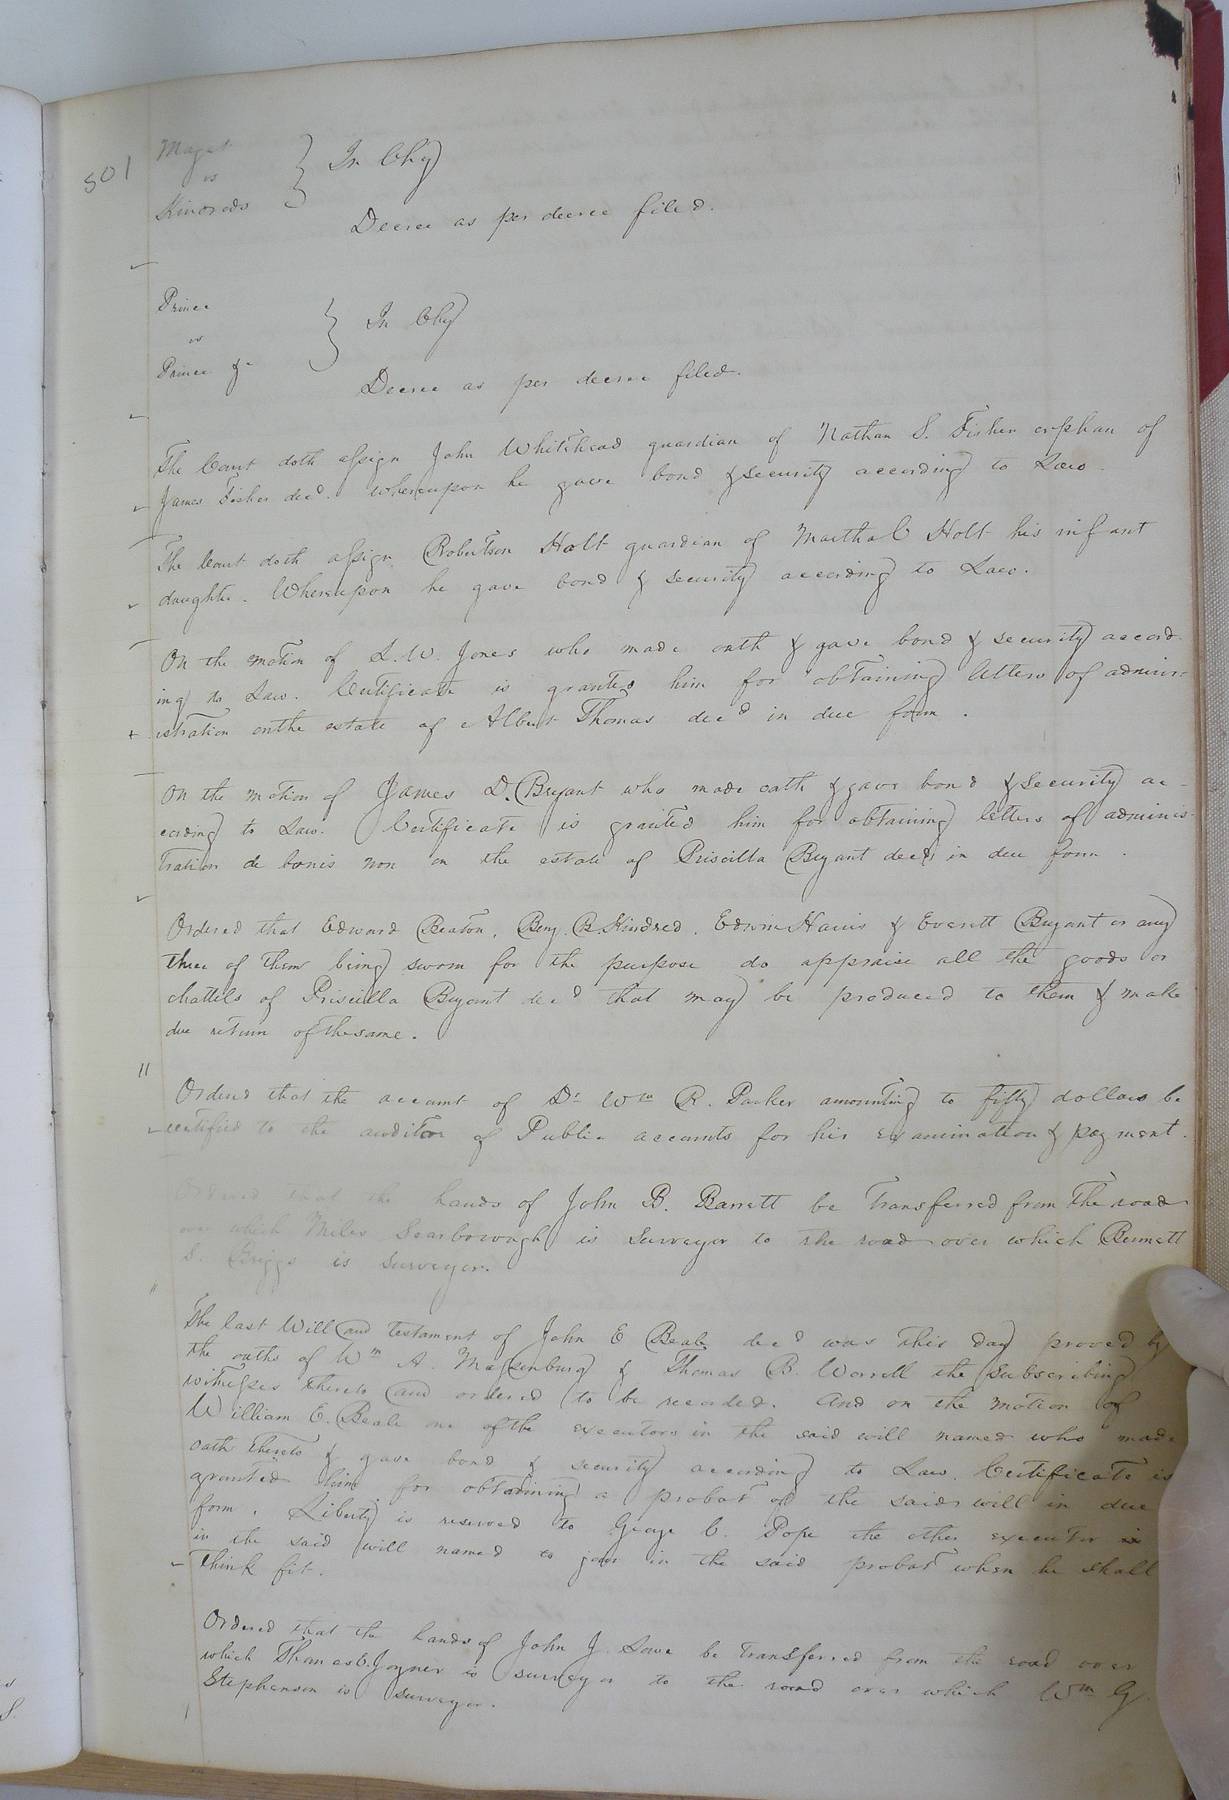 501
Maget
vs
Kindreds
In Chy
Decree as per decree filed.
Prince
vs
Prince &c
In Chy
Decree as per decree filed.
The Court doth assign John Whitehead guardian of Nathan S. Fisher orphan of
James Fisher decd. whereupon he gave bond & security according to Law.
The Court doth assign Robertson Holt guardian of Martha C Holt his infant
daughter. Whereupon he gave bond & security according to Law.
On the motion of L. W. Jones who made oath & gave bond & security accord-
ing to Law. Certificate is granted him for obtaining letters of admin-
istration on the estate of Albert Thomas decd in due form.
On the motion of James D. Bryant who made oath & gave bond & security ac-
cording to Law. Certificate is granted him for obtaining letters of adminis-
tration de bonis non on the estate of Priscilla Bryant decd in due form.
Ordered that Edward Beaton, Benj. B. Kindred, Edwin Harris & Everett Bryant or any
three of them being sworn for the purpose do appraise all the goods or
chattels of Priscilla Bryant decd that may be produced to them & make
due return of the same.
Ordered that the account of Dr Wm R. Parker amounting to fifty dollars be
certified to the auditor of Public accounts for his examination & payment.
Ordered that the hands of John B. Barrett be transferred from the road
over which Miles Scarborough is Surveyor to the road over which Bennett
S. Griggs is surveyor.
The last Will and testament of John E Beale decd was this day proved by
the oaths of Wm A. Massenburg & Thomas B. Worrell the Subscribing
witnesses thereto and ordered to be recorded. And on the motion of
William E. Beale one of the executors in the said will named who made
oath thereto & gave bond & security according to Law. Certificate is
granted him for obtaining a probat of the said will in due
form. Liberty is reserved to George C. Pope the other executor
in the said will named to join in the said probat when he shall
think fit.
Ordered that the hands of John J. Lowe be transferred from the road over
which Thomas C. Joyner is surveyor to the road over which Wm G.
Stephenson is surveyor.